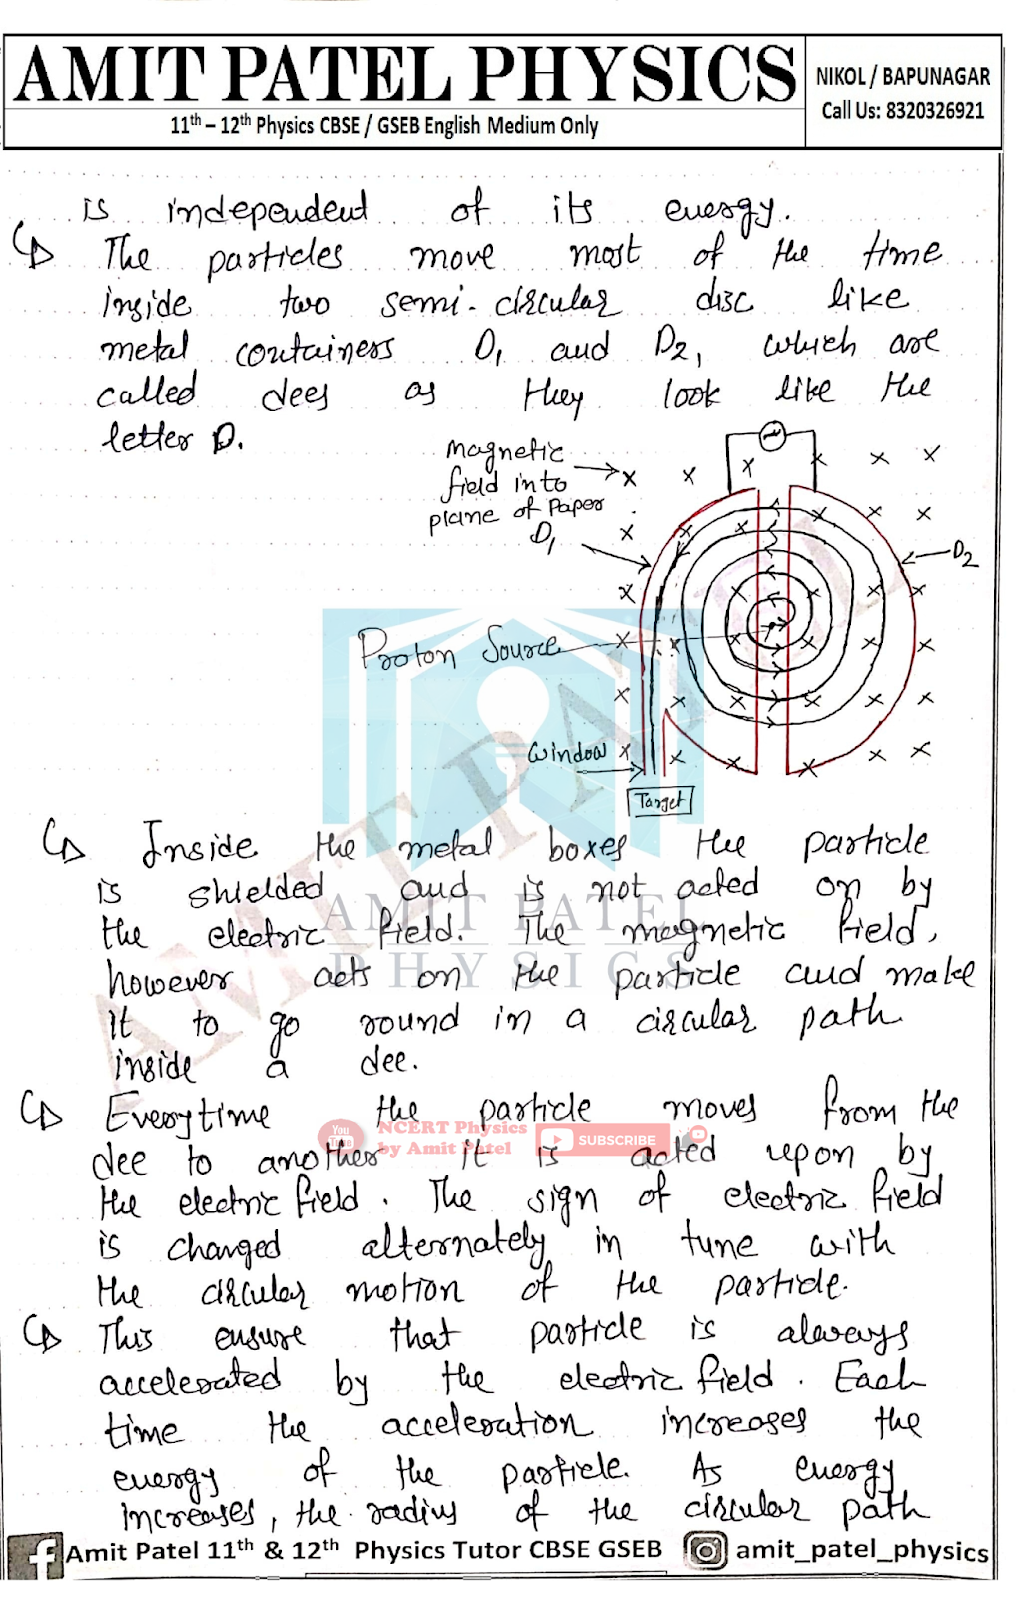 AMIT PATEL PHYSICS
11th – 12th Physics CBSE / GSEB English Medium Only
NIKOL / BAPUNAGAR
Call Us: 8320326921
is independent of its energy.
The particles move most of the time
inside two semi-circular disc like
metal containers D1 and D2, which are
called dees as they look like the
letter D.
magnetic
field into
plane of Paper
D1
D2
Proton Source
Window
Target
Inside the metal boxes the particle
is shielded and is not acted on by
the electric field. The magnetic field,
however acts on the particle and make
it to go round in a circular path
inside a dee.
Everytime the particle moves from the
dee to another it is acted upon by
the electric field. The sign of electric field
is changed alternately in tune with
the circular motion of the particle.
This ensure that particle is always
accelerated by the electric field. Each
time the acceleration increases the
energy of the particle. As energy
increases, the radius of the circular path
AMIT PATEL
AMIT PATEL
PHYSICS
You
Tube
NCERT Physics
by Amit Patel
SUBSCRIBE
Amit Patel 11th & 12th Physics Tutor CBSE GSEB
amit_patel_physics